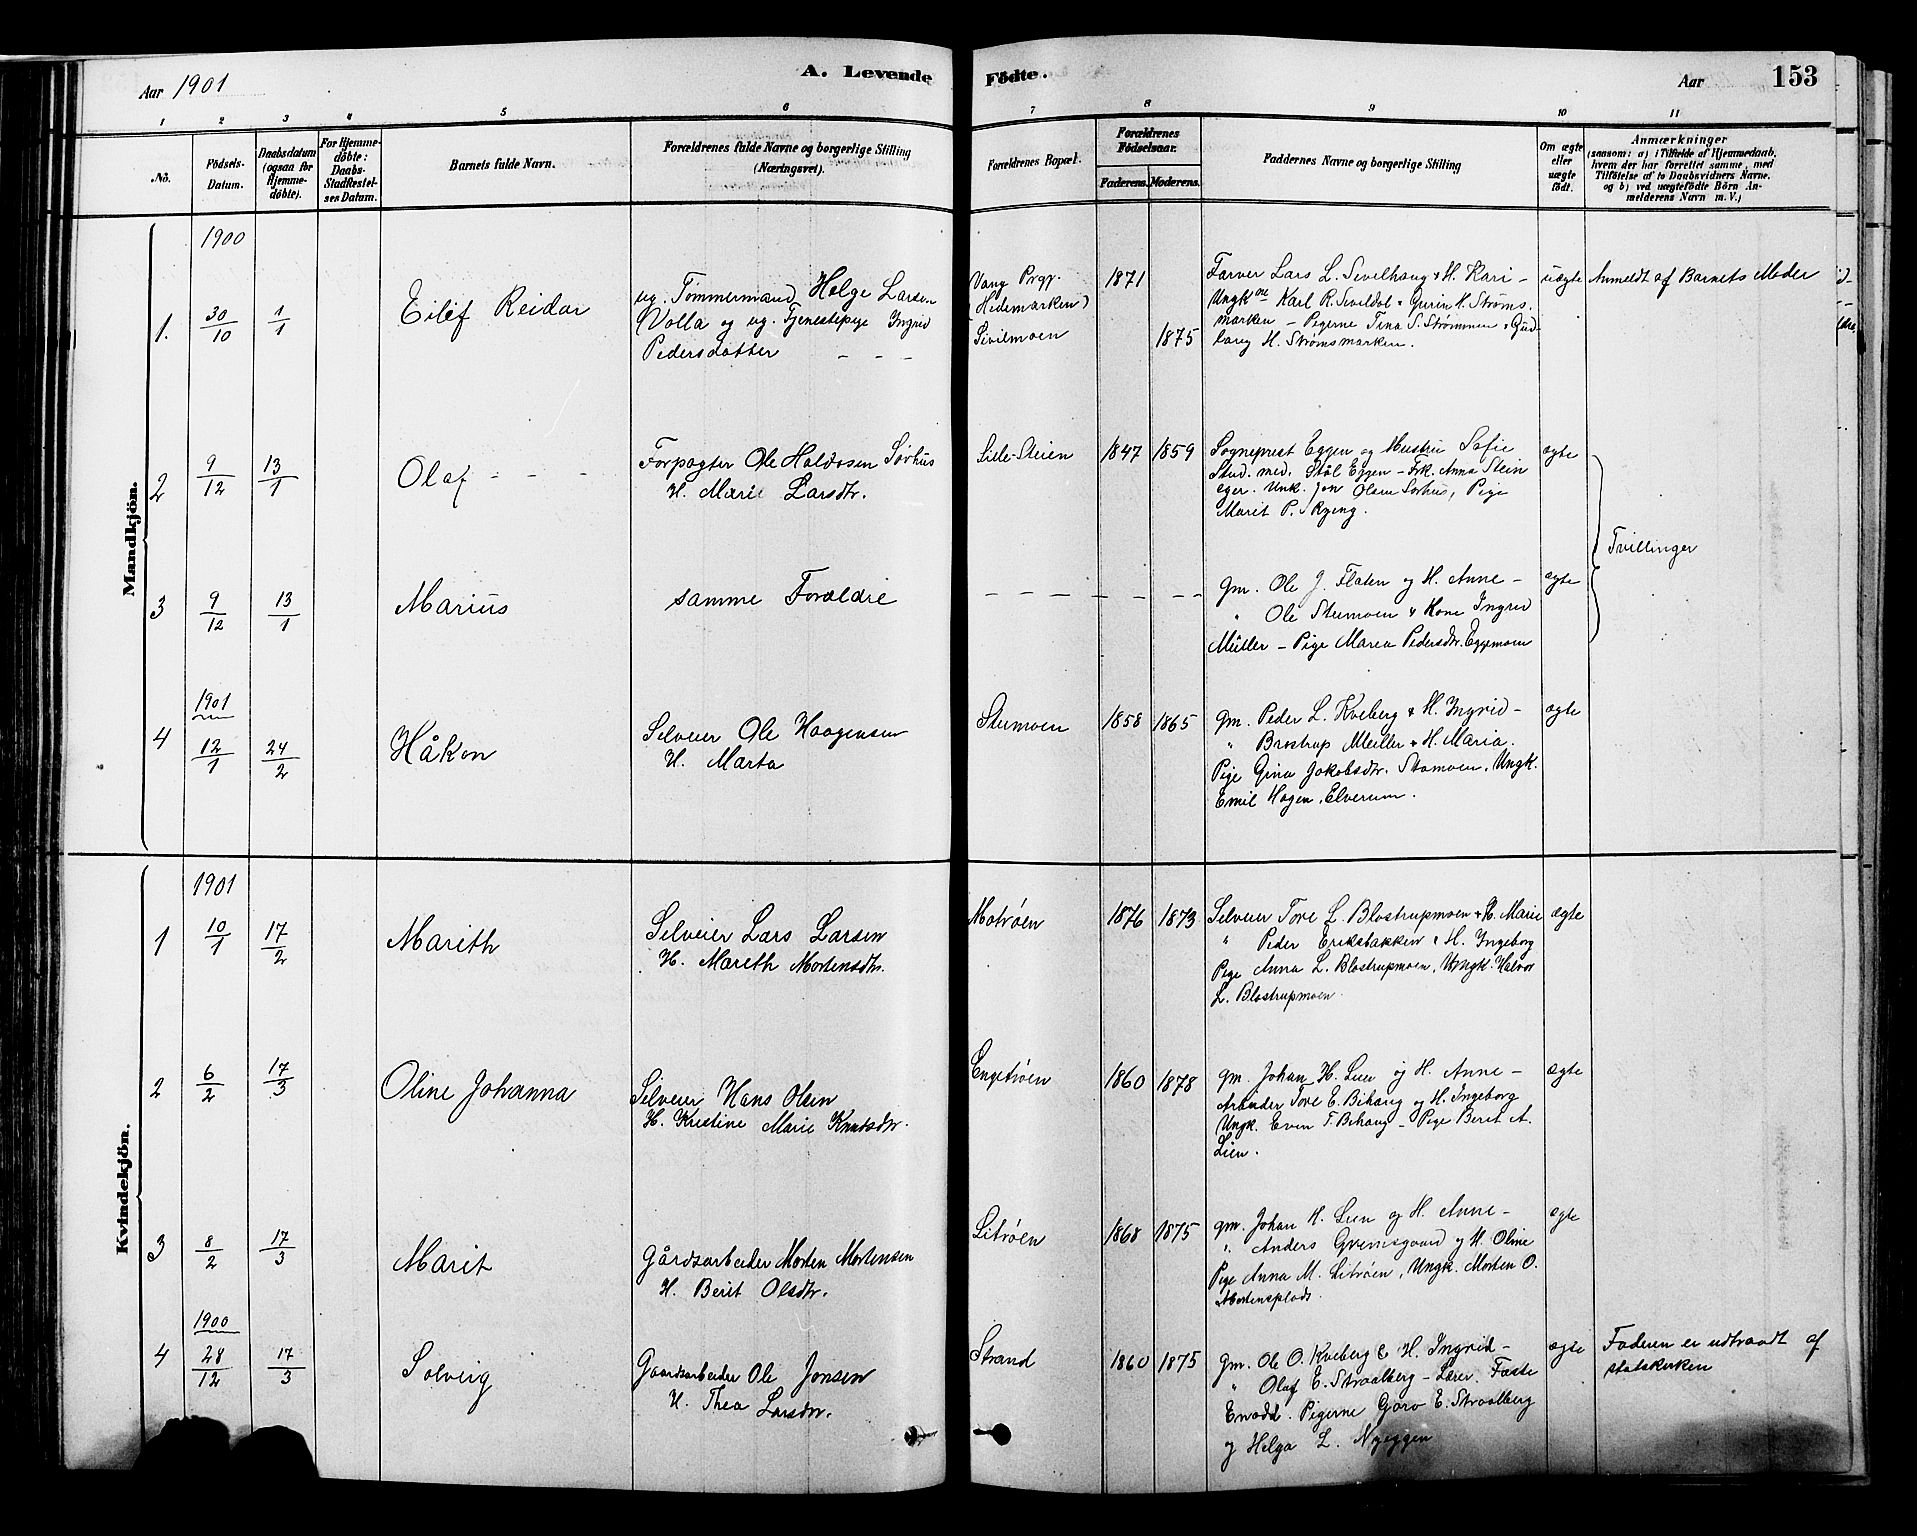 Aar 1901
A. Levende
Födte.
Aar
153
1 2 3 4 5 6 7 8 9 10 11
Nö.
Födsels-
Datum.
Daabsdatum
(ogsaa for
Hjemme-
döbte).
For Hjemme-
döbte:
Daabs-
Stadfestel-
ses Datum.
Barnets fulde Navn.
Forældrenes fulde Navne og borgerlige Stilling
(Næringsvei).
Forældrenes Bopæl.
Forældrenes
Födselsaar.
Faderens. Moderens.
Faddernes Navne og borgerlige Stilling
Om ægte
eller
uægte
födt.
Anmærkninger
(saasom: a) i Tilfælde af Hjemmedaab,
hvem der har forrettet samme, med
Tilföielse af to Daabsvidners Navne,
og b) ved uægtefödte Börn An-
melderens Navn m. V.)
Mandkjön.
1900
1. 30/10 1/1
Eilif Reidar
ug. Tömmermand Helge Larsen
Volla og ug. Tjenestepige Ingrid
Pedersdatter - - -
Vang Prgj.
(Hedemarken)
Sivilmoen
1871
1875
Farver Lars L. Sivelhaug & H. Kari -
Ungkne Karl R. Siveldal & Gurin H. Ströms
marken - Pigerne Tina S. Strömmen & Gud-
laug H. Strömsmarken.
uægte
Anmeldt af Barnets Moder
2 9/12 13/1
Olaf - - -
Forpagter Ole Haldosen Sörhus
H. Marie Larsdtr.
Lille-Steien
1847 1859
Sogneprest Eggen og Hustru Sofie
Stud. med. Stål Eggen - Frk. Anna Stein
eger. Unk. Jon Olsen Sörhus, Pige
Marit P. Ryeng.
ægte
Tvillinger
3 9/12 13/1
Marius
samme Forældre
- - - - - - - -
gm. Ole J. Flaten og H. Anne -
" Ole Stumoen & Kone Ingrid
Müller - Pige Maren Pedersdtr. Eggemoen
ægte
1901
4 12/1 24/2
Håkon
Selveier Ole Haagensen
H. Marta
Stumoen
1858 1865
gm. Peder L. Kveberg & H. Ingrid -
" Brostrup Müller & H. Maria.
Pige Gina Jakobsdtr. Stumoen, Ungk.
Emil Hagen, Elverum.
ægte
Kvindekjön.
1901
1 10/1 17/2
Marith
Selveier Lars Larsen
H. Marith Mortensdtr.
Motröen
1876 1873
Selveier Tore L. Blostrupmoen & H. Marie
" Peder Eriksbakken & H. Ingeborg
Pige Anna L. Blostrupmoen, Ungk. Halvor
L. Blostrupmoen
ægte
2 6/2 17/3
Oline Johanna
Selveier Hans Olsen
H. Kristine Marie Knutsdtr.
Engetröen
1860 1878
gm. Johan H. Lien og H. Anne -
Arbeider Tore E. Bihaug og H. Ingeborg
Ungk. Even T. Bihaug - Pige Berit A.
Lien.
ægte
3 8/2 17/3
Marit
Gårdsarbeider Morten Mortensen
H. Berit Olsdtr.
Litröen
1868 1875
gm. Johan H. Lien og H. Anne -
" Anders Grimsgaard og H. Oline
Pige Anna M. Litröen, Ungk. Morten O.
Mortensplads.
ægte
1900
4 28/12 17/3
Solveig
Gaardsarbeider Ole Jonsen
H. Thea Larsdtr.
Strand
1860 1875
gm. Ole O. Kveberg & H. Ingrid -
" Olaf E. Straalberg - Lærer Fæste
Enodd. Pigerne Goro E. Straalberg
og Helga L. Nyeggen
ægte
Faderen er udtraadt af
statskirken